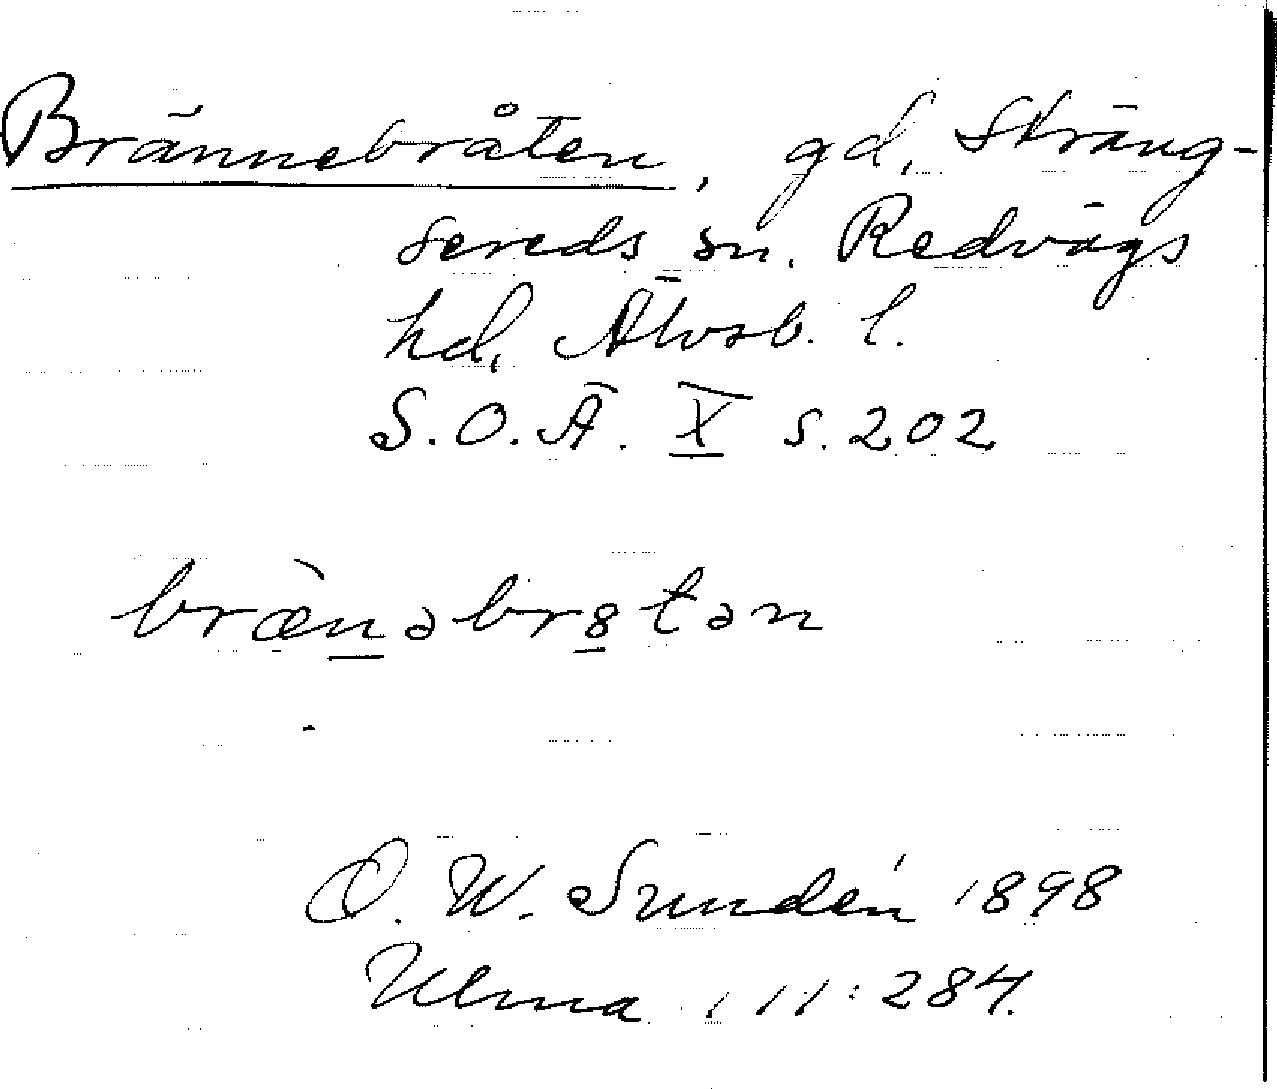 Brännebråten, gd, Sträng-
sereds sn. Redvägs
hd, Älvsb. l.
S.O.Ä. X s. 202
brænəbr8tən
O. W. Sundén 1898
Ulma 111:284.